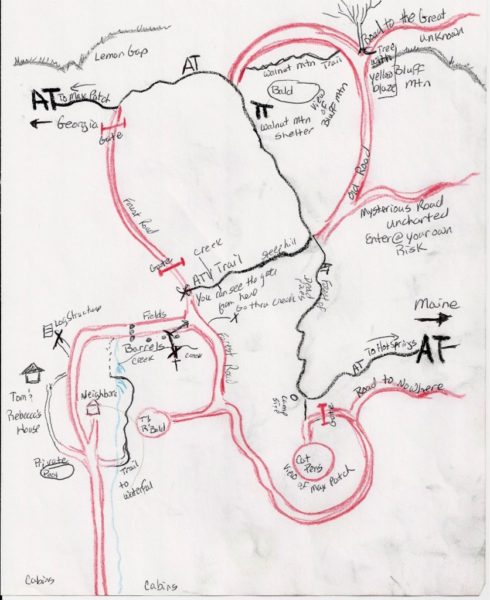 Road to the Great
unknown
Lemon Gap
AT
Walnut mtn Trail
Tree
with
yellow
blaze
Bluff
mtn
AT
To Max Patch
Georgia
Gate
Bald
View
of
Bluff mtn
Walnut mtn
shelter
Old Road
Forest Road
Mysterious Road
Uncharted
Enter @ your own
Risk
creek
Gate
ATV Trail
steep hill
AT
You can see the gate
from here
Go thru creek
Maine
AT
To Hot Springs
AT
Road to Nowhere
Log Structure
Fields
Barrels
creek
Forest Road
Tom?
Rebecca's
House
Neighbors
Private
Trail
to
waterfall
To
R. Bald
Camp
Site
Gate
Cat
Pens
View of Max Patch
Cabins
Cabins